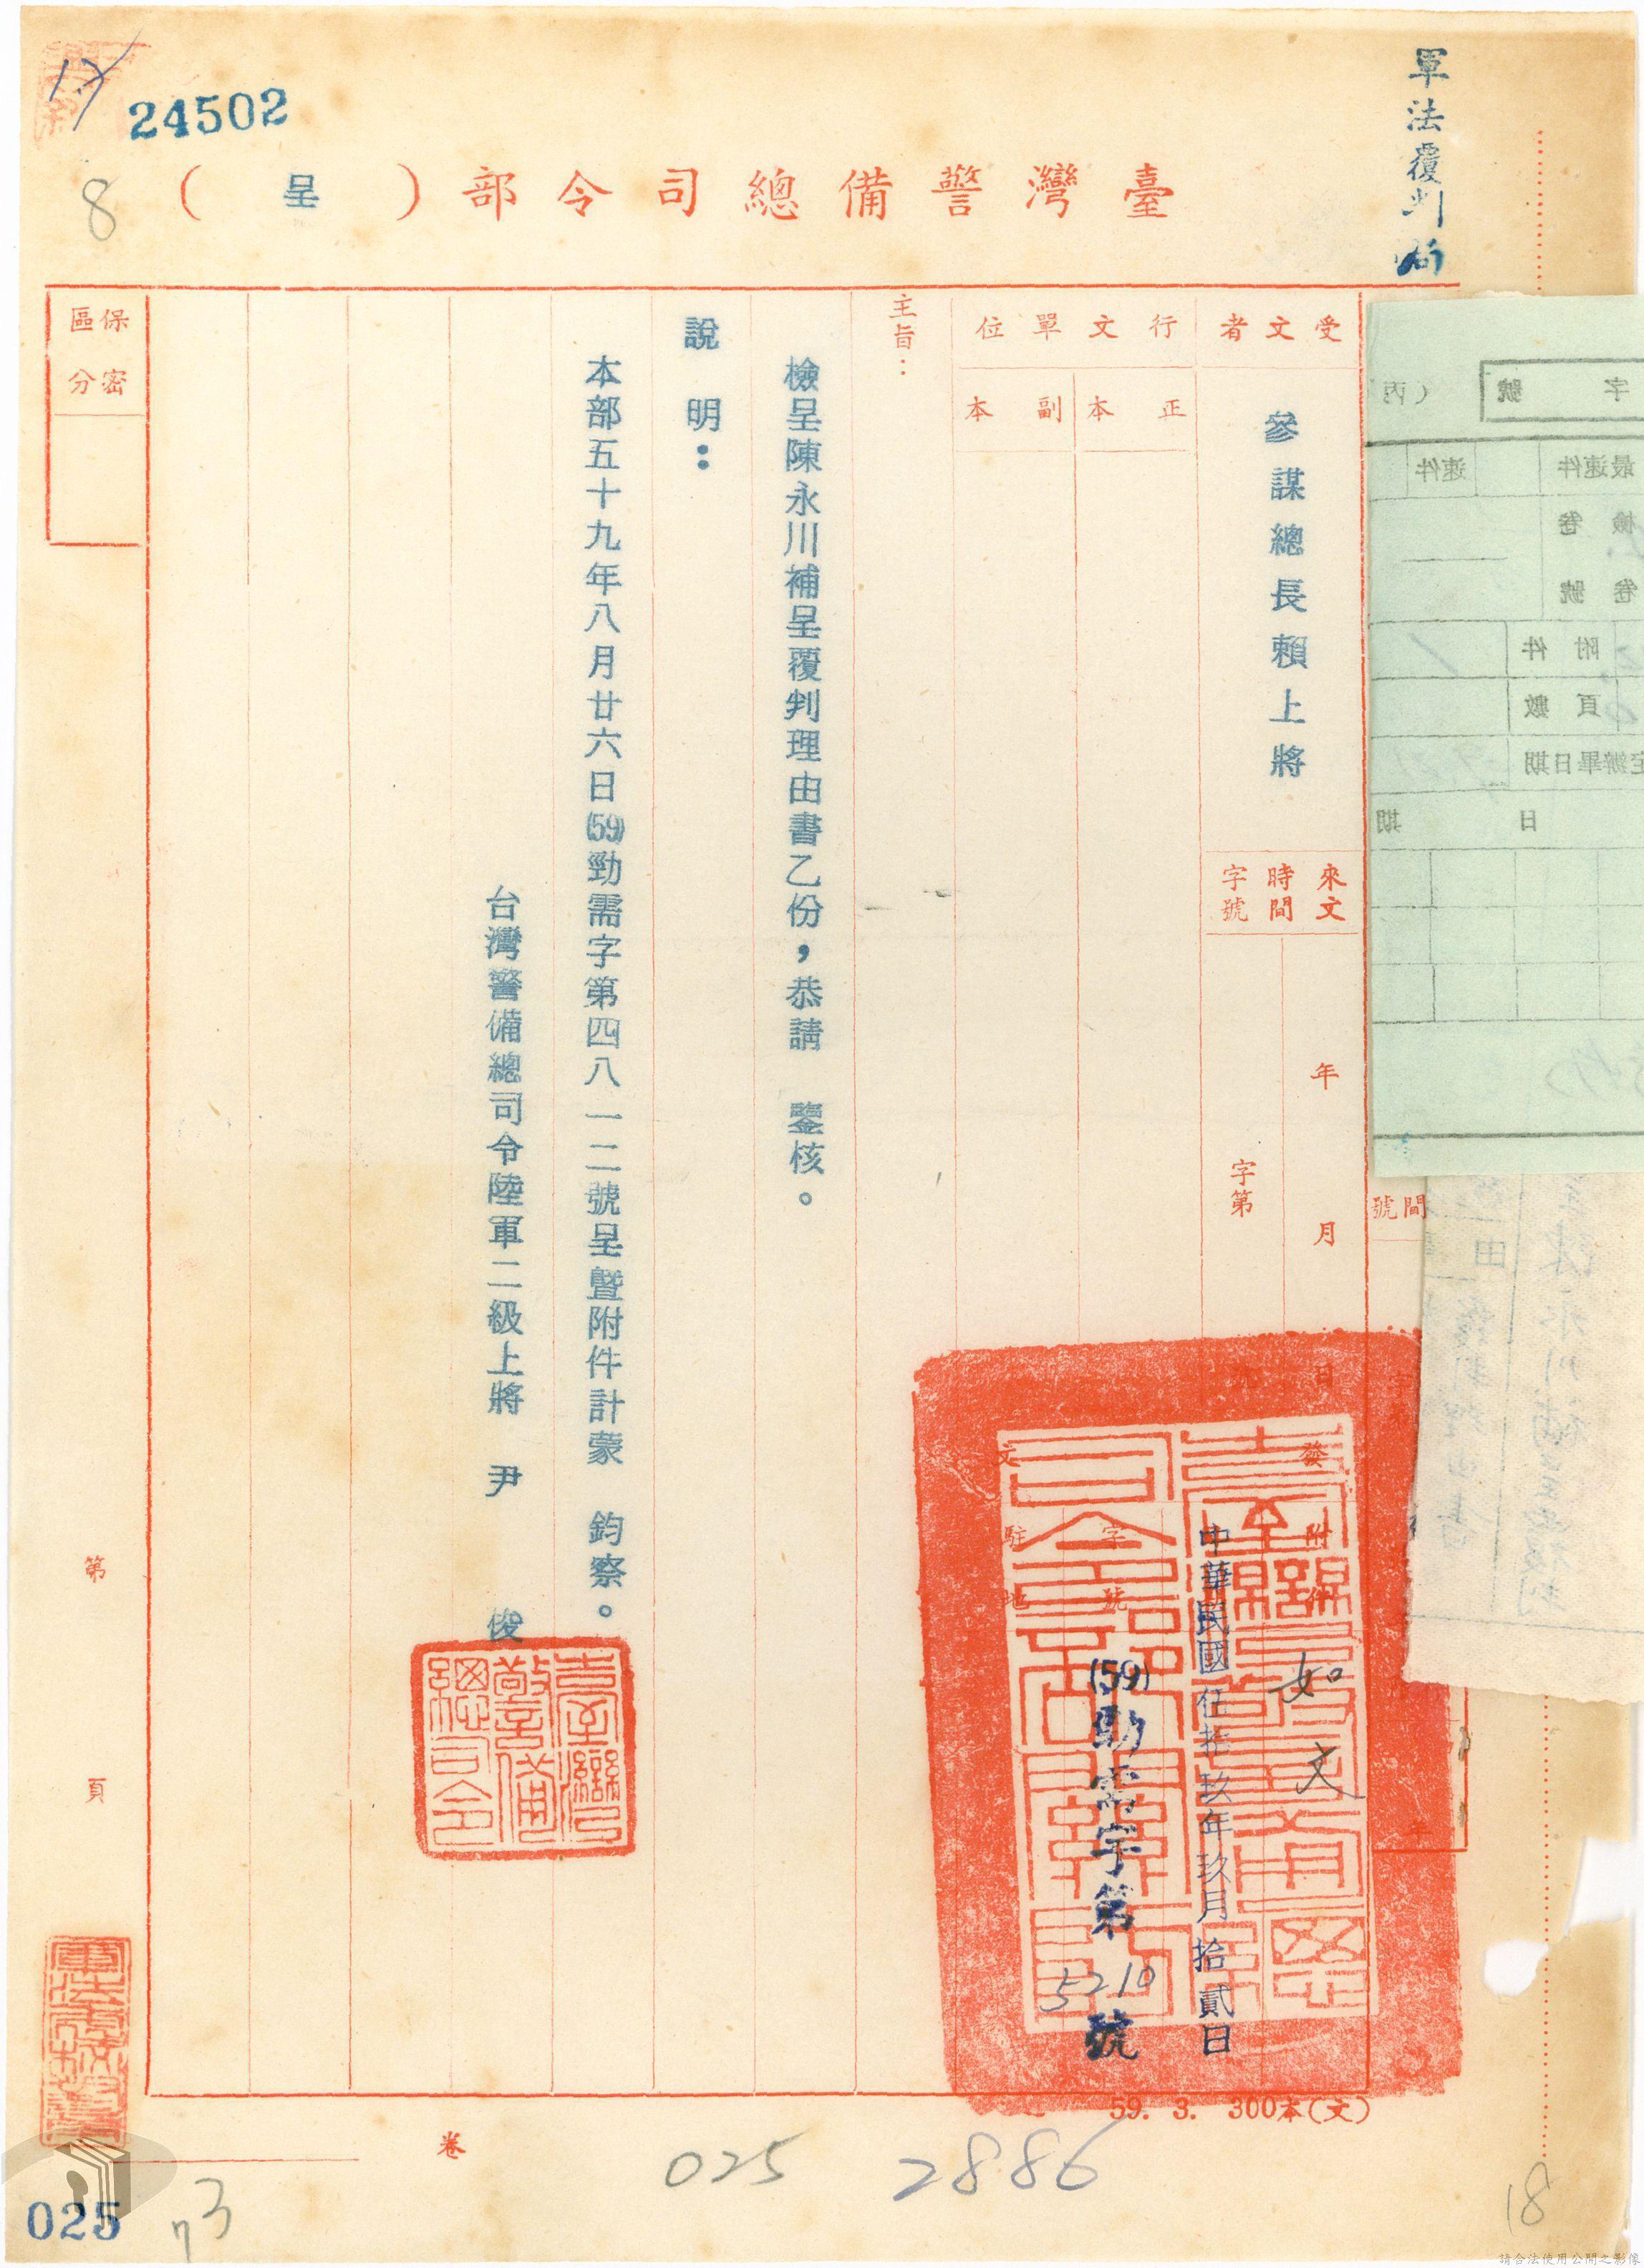 軍法覆判局
24502
8
臺灣警備總司令部（呈）
受文者
參謀總長賴上將
來文
時間
字號
年
月
日
字第
行文單位
正本
副本
發文
附件
如文
中華民國伍拾玖年玖月拾貳日
字號
(59)勁需字第5210號
駐地
主旨：
檢呈陳永川補呈覆判理由書乙份，恭請　鑒核。
說明：
本部五十九年八月廿六日(59)勁需字第四八一二號呈暨附件計蒙　鈞察。
台灣警備總司令陸軍二級上將　尹　俊
臺灣警備總司令
保密區分
第
頁
字
號
（丙
最速件
速件
檢卷
卷號
附件
頁數
定辦畢日期
日
期
號
間
由
59. 3. 300本(文)
卷
025
2886
025
73
18
請合法使用公開之影像